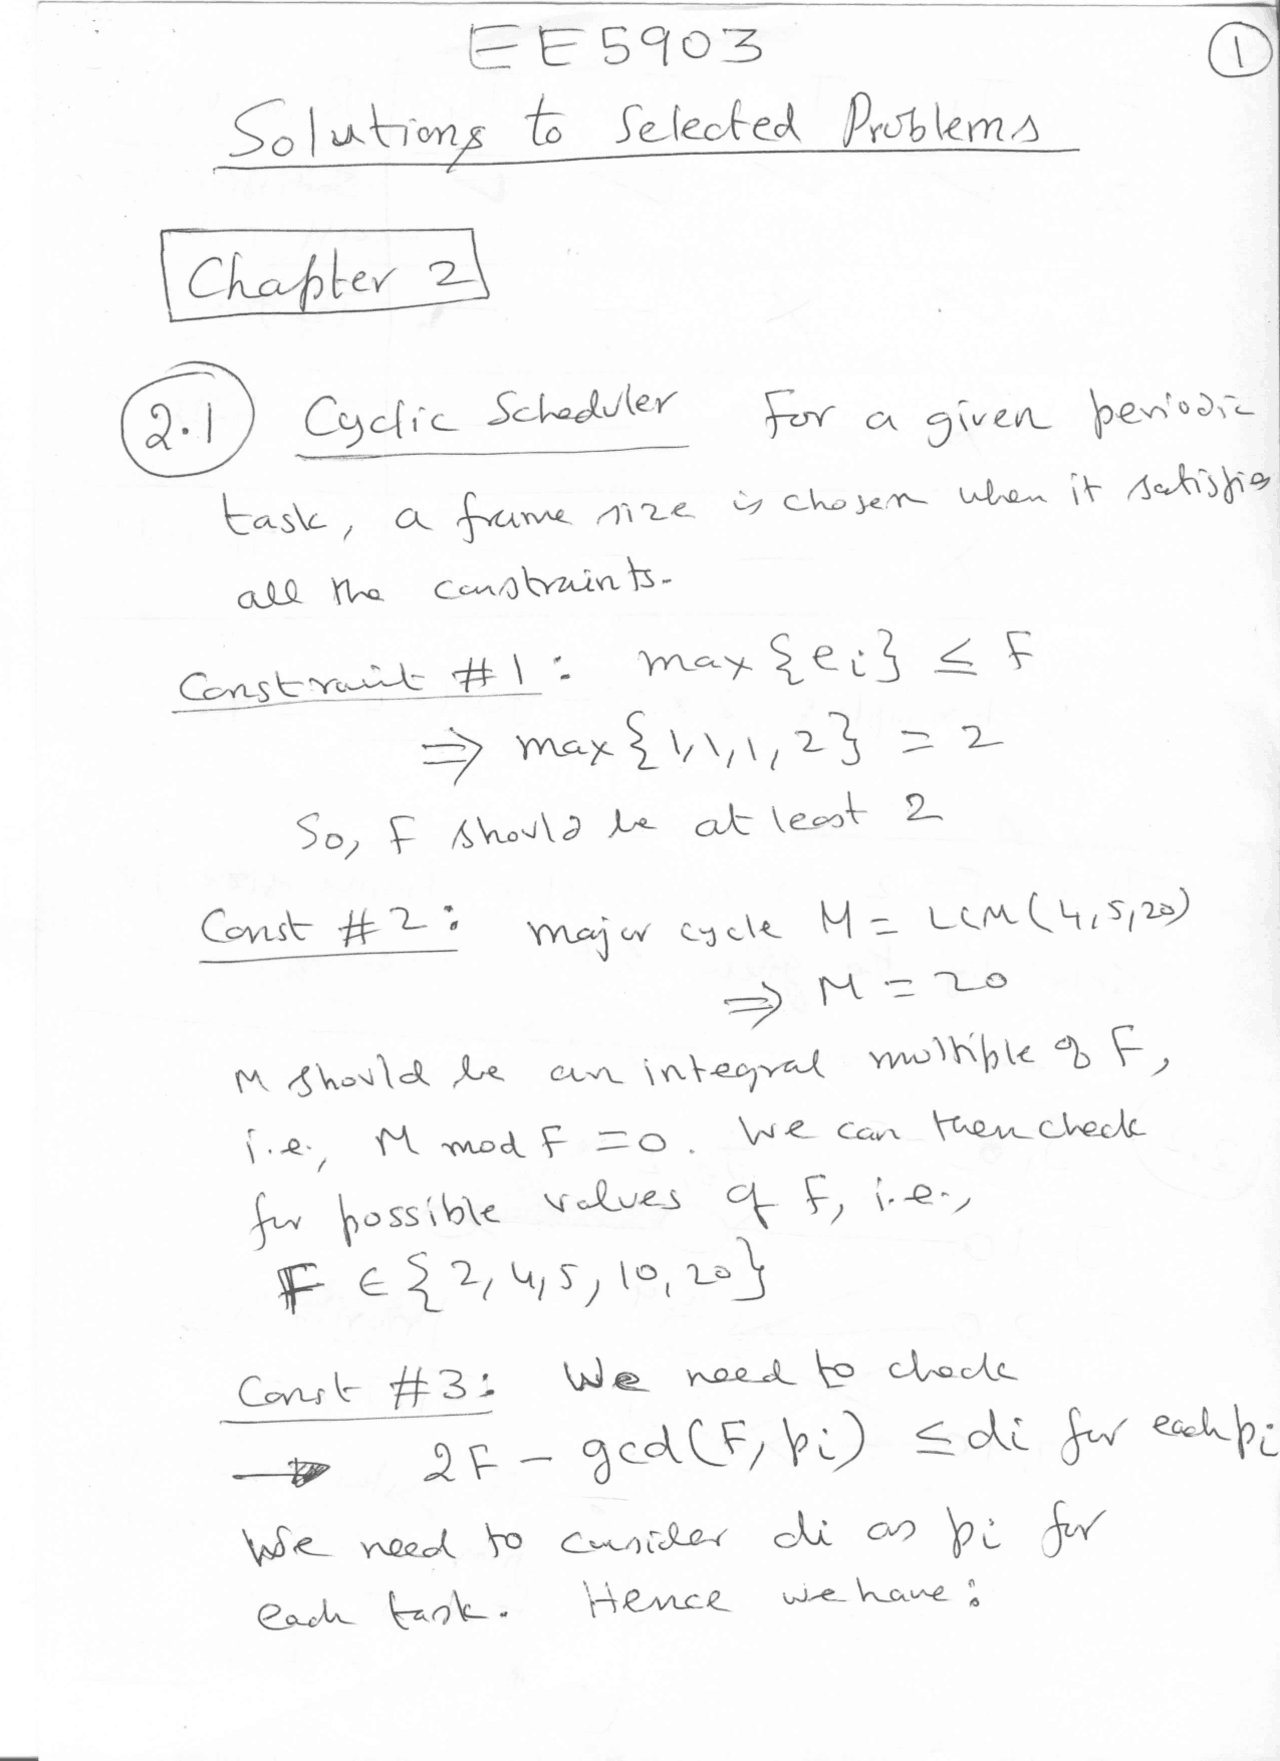 EE5903
1
Solutions to Selected Problems
Chapter 2
2.1 Cyclic Scheduler For a given periodic
task, a frame size is chosen when it satisfies
all the constraints.
Constraint #1: max {ei} ≤ F
⇒ max {1,1,1,2} = 2
So, F should be at least 2
Const #2: major cycle M = LCM(4,5,20)
⇒ M = 20
M should be an integral multiple of F,
i.e., M mod F = 0. We can then check
for possible values of F, i.e.,
F ∈ {2,4,5,10,20}
Const #3: We need to check
→ 2F - gcd(F, pi) ≤ di for each pi
We need to consider di as pi for
each task. Hence we have: